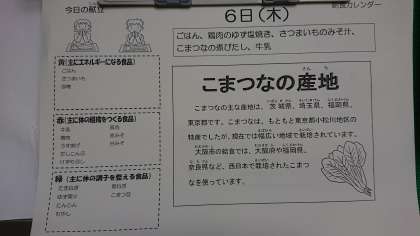 今日の献立
6日(木)
給食カレンダー
ごはん、鶏肉のゆず塩焼き、さつまいものみそ汁、
こまつなの煮びたし、牛乳
黄(主にエネルギーになる食品)
ごはん
さつまいも
赤(主に体の組織をつくる食品)
牛乳
鶏肉
うすあげ
赤みそ
白みそ
緑(主に体の調子を整える食品)
たまねぎ
青ねぎ
ゆず果汁
こまつな
にんじん
えのき
こまつなの産地
さんち
こまつなの主な産地は、茨城県、埼玉県、福岡県、
東京都です。こまつなは、もともと東京都小松川地区の
特産でしたが、現在では幅広い地域で栽培されています。
大阪市の給食では、大阪府や福岡県、
奈良県など、西日本で栽培されたこまつ
なを使っています。